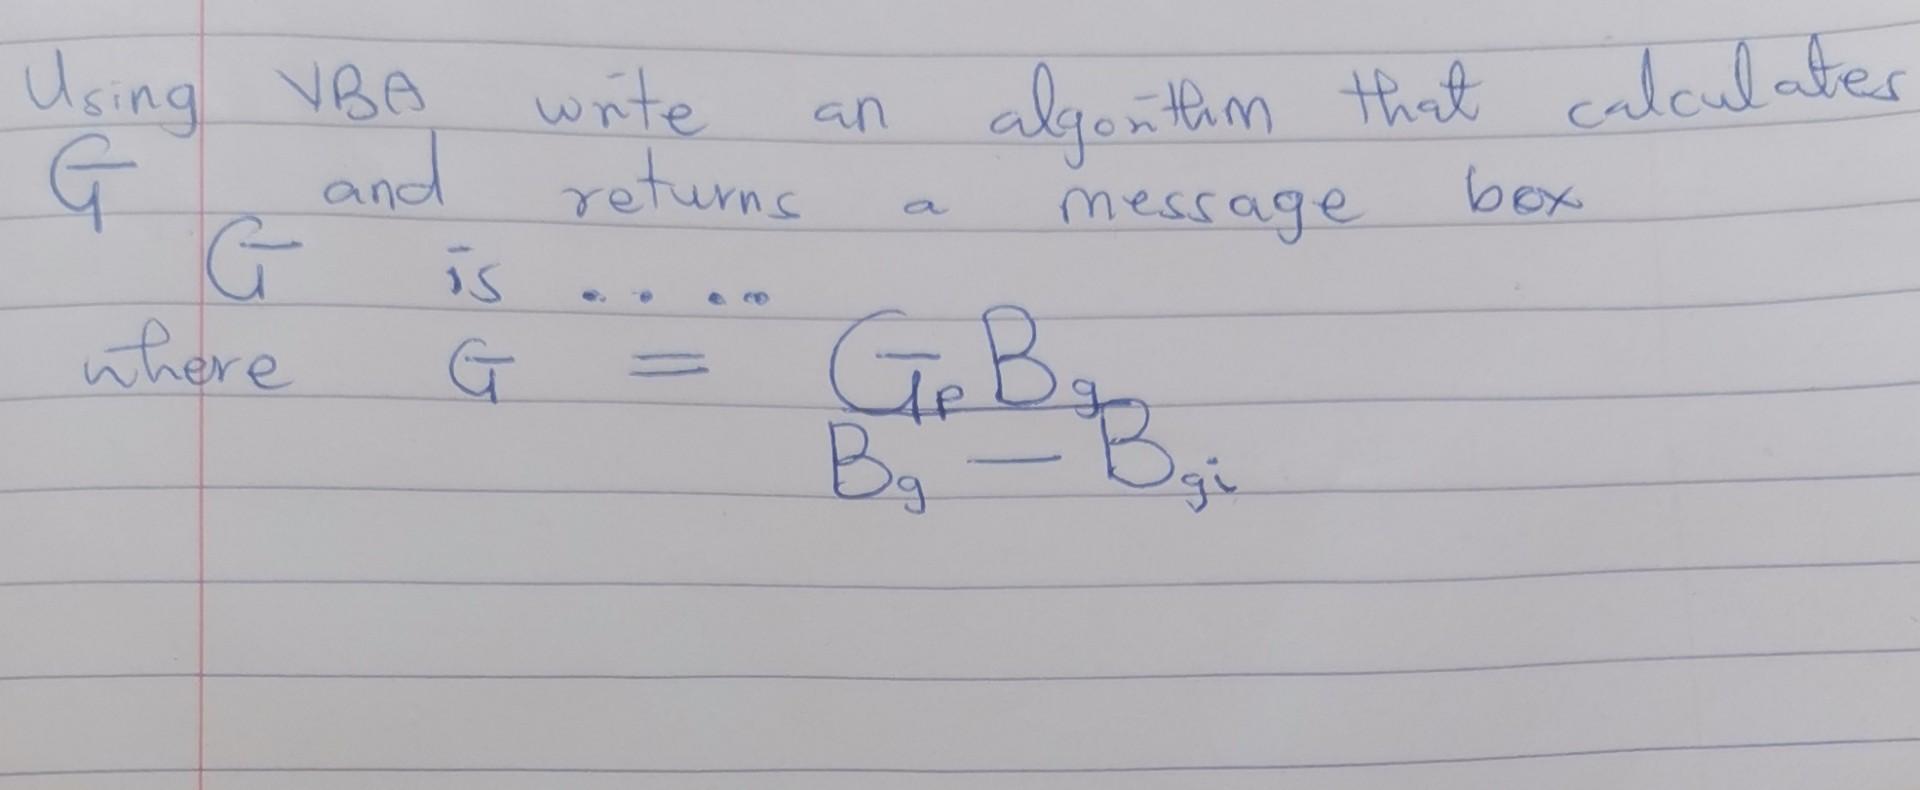 Using VBA write an algorithm that calculates
G and returns a message box
G is ....
where G = GpBg
Bg - Bgi